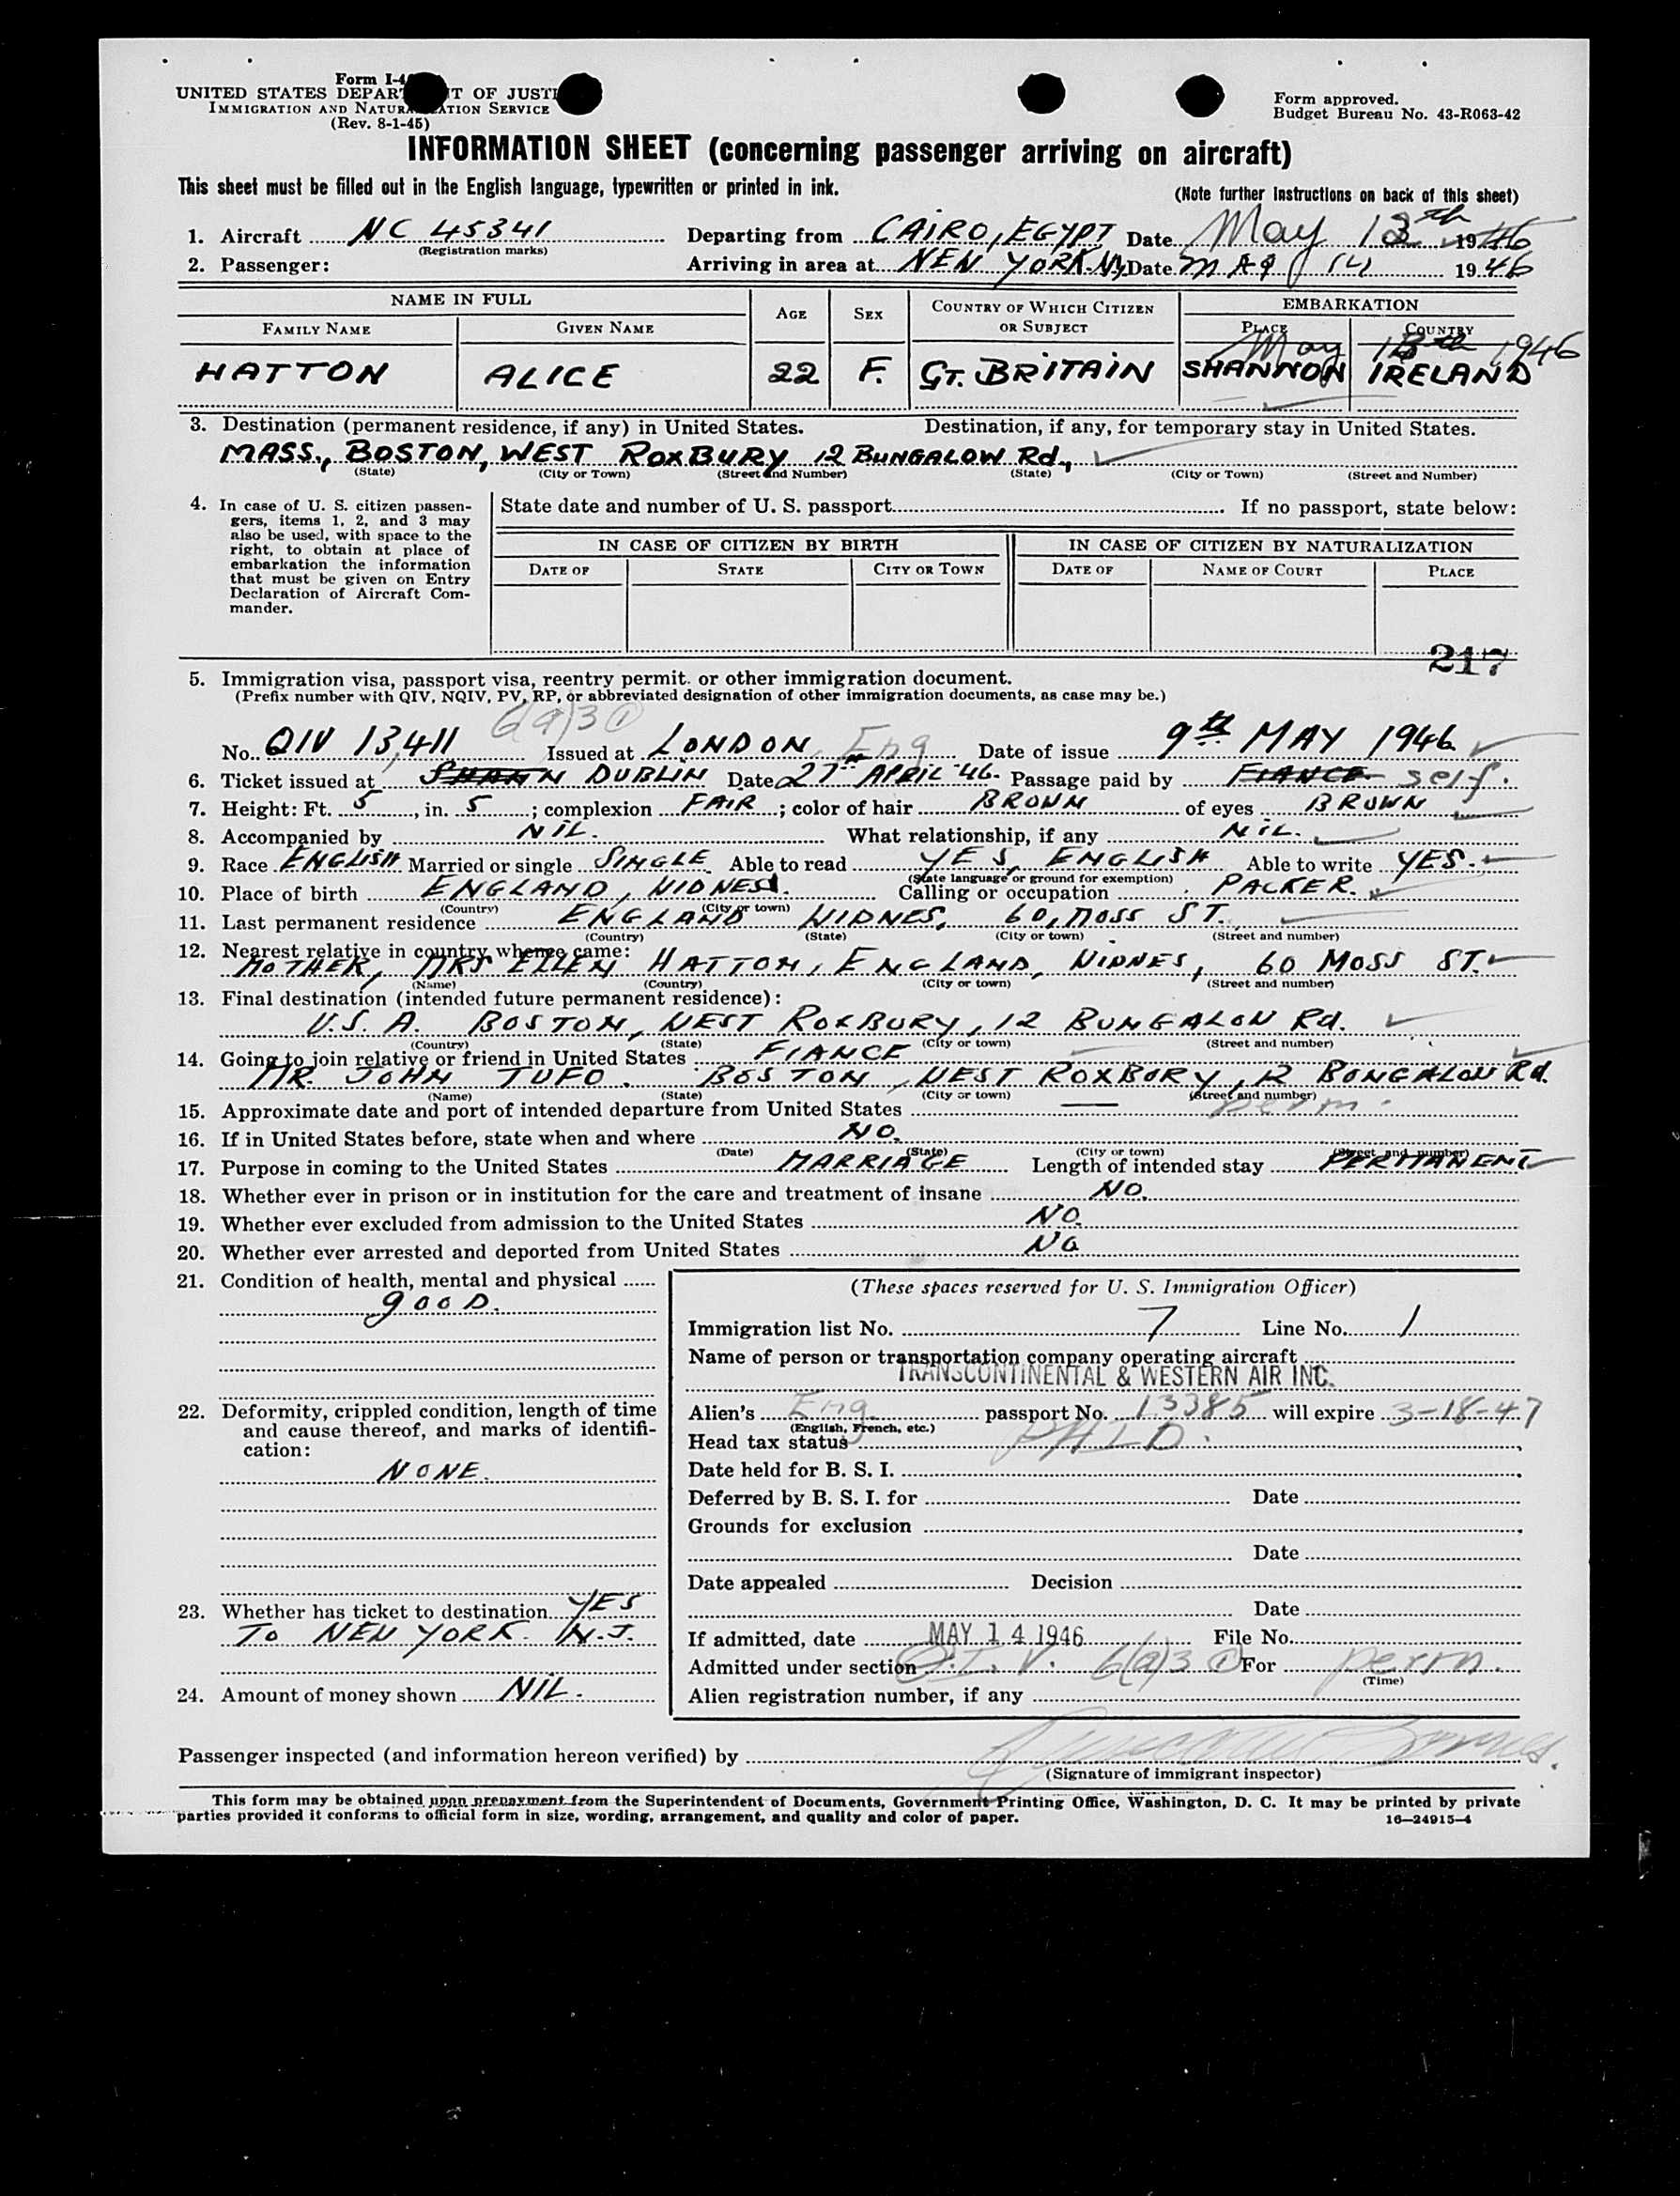 Form I-4
UNITED STATES DEPAR T OF JUSTI
IMMIGRATION AND NATUR ATION SERVICE
(Rev. 8-1-45)
Form approved.
Budget Bureau No. 43-R063-42
INFORMATION SHEET (concerning passenger arriving on aircraft)
This sheet must be filled out in the English language, typewritten or printed in ink.
(Note further instructions on back of this sheet)
1. Aircraft NC 45341 Departing from CAIRO, EGYPT Date May 13th 1946
(Registration marks)
2. Passenger: Arriving in area at NEW YORK. NY Date MAY 14 1946
NAME IN FULL AGE SEX COUNTRY OF WHICH CITIZEN OR SUBJECT EMBARKATION
FAMILY NAME GIVEN NAME PLACE COUNTRY
May 13th 1946
HATTON ALICE 22 F. GT. BRITAIN SHANNON IRELAND
3. Destination (permanent residence, if any) in United States. Destination, if any, for temporary stay in United States.
MASS., BOSTON, WEST ROXBURY 12 BUNGALOW Rd.,
(State) (City or Town) (Street and Number) (State) (City or Town) (Street and Number)
4. In case of U. S. citizen passen-
gers, items 1, 2, and 3 may
also be used, with space to the
right, to obtain at place of
embarkation the information
that must be given on Entry
Declaration of Aircraft Com-
mander.
State date and number of U. S. passport If no passport, state below:
IN CASE OF CITIZEN BY BIRTH IN CASE OF CITIZEN BY NATURALIZATION
DATE OF STATE CITY OR TOWN DATE OF NAME OF COURT PLACE
217
5. Immigration visa, passport visa, reentry permit. or other immigration document.
(Prefix number with QIV, NQIV, PV, RP, or abbreviated designation of other immigration documents, as case may be.)
6(a)3 (1)
No. QIV 13,411 Issued at LONDON Eng Date of issue 9th MAY 1946
6. Ticket issued at DUBLIN Date 27th APRIL 46. Passage paid by FIANCE self.
7. Height: Ft. 5, in. 5; complexion FAIR; color of hair BROWN of eyes BROWN
8. Accompanied by NIL. What relationship, if any NIL.
9. Race ENGLISH Married or single SINGLE. Able to read YES, ENGLISH Able to write YES.
(State language or ground for exemption)
10. Place of birth ENGLAND, WIDNES. Calling or occupation PACKER.
(Country) (City or town)
11. Last permanent residence ENGLAND WIDNES, 60, MOSS ST.
(Country) (State) (City or town) (Street and number)
12. Nearest relative in country whence came:
MOTHER, MRS ELLEN HATTON, ENGLAND, WIDNES, 60 MOSS ST.
(Name) (Country) (City or town) (Street and number)
13. Final destination (intended future permanent residence):
U.S.A. BOSTON, WEST ROXBURY, 12 BUNGALOW Rd.
(Country) (State) (City or town) (Street and number)
14. Going to join relative or friend in United States FIANCE
MR. JOHN TUFO. BOSTON, WEST ROXBORY, 12 BUNGALOW Rd.
(Name) (State) (City or town) (Street and number)
15. Approximate date and port of intended departure from United States — perm.
16. If in United States before, state when and where NO.
(Date) (State) (City or town) (Street and number)
17. Purpose in coming to the United States MARRIAGE Length of intended stay PERMANENT
18. Whether ever in prison or in institution for the care and treatment of insane NO.
19. Whether ever excluded from admission to the United States NO.
20. Whether ever arrested and deported from United States NO
21. Condition of health, mental and physical
GOOD.
22. Deformity, crippled condition, length of time
and cause thereof, and marks of identifi-
cation:
NONE.
23. Whether has ticket to destination YES
TO NEW YORK. N.J.
24. Amount of money shown NIL.
(These spaces reserved for U. S. Immigration Officer)
Immigration list No. 7 Line No. 1
Name of person or transportation company operating aircraft
TRANSCONTINENTAL & WESTERN AIR INC.
Alien's Eng. passport No. 13385 will expire 3-18-47
(English, French, etc.)
Head tax status PAID.
Date held for B. S. I.
Deferred by B. S. I. for Date
Grounds for exclusion
Date
Date appealed Decision
Date
If admitted, date MAY 14 1946 File No.
Admitted under section Q.I.V. 6(a)3 (1) For perm.
(Time)
Alien registration number, if any
Passenger inspected (and information hereon verified) by
(Signature of immigrant inspector)
This form may be obtained upon prepayment from the Superintendent of Documents, Government Printing Office, Washington, D. C. It may be printed by private
parties provided it conforms to official form in size, wording, arrangement, and quality and color of paper.
16—24915-4